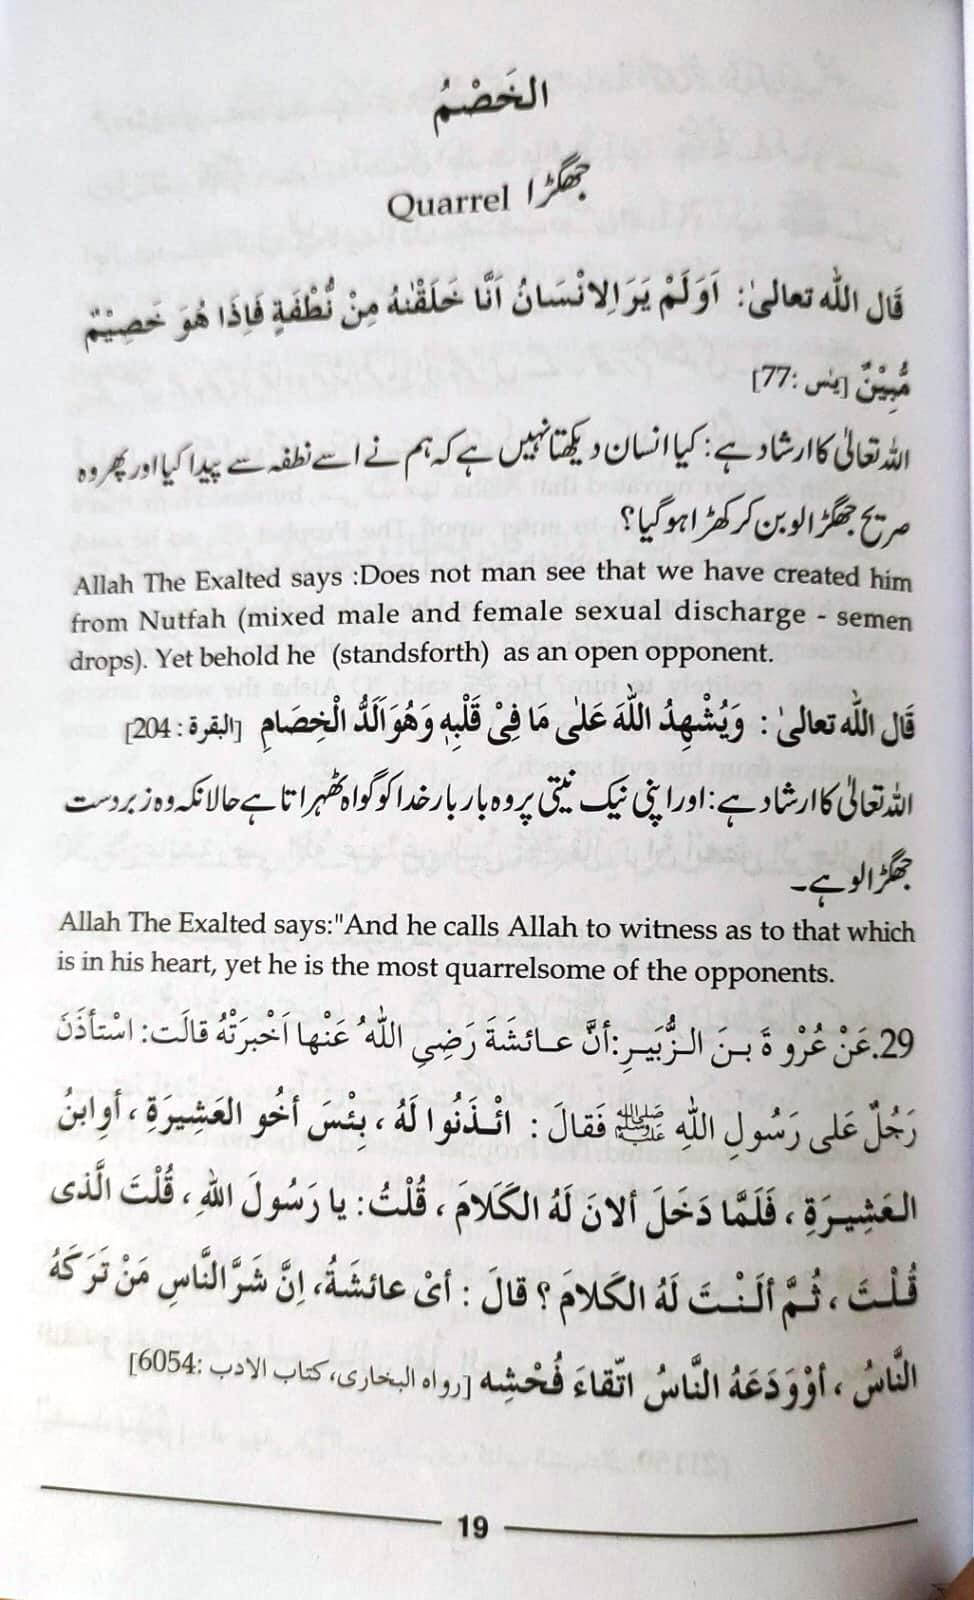 الخَصْمُ
جھگڑا Quarrel
قَال اللّٰه تعالىٰ: اَوَلَمْ يَرَ الِانْسَانُ اَنَّا خَلَقْنٰهُ مِنْ نُّطْفَةٍ فَاِذَا هُوَ خَصِيْمٌ
مُّبِيْنٌ [يٰس :77]
اللہ تعالیٰ کا ارشاد ہے: کیا انسان دیکھتا نہیں ہے کہ ہم نے اسے نطفہ سے پیدا کیا اور پھر وہ
صریح جھگڑالو بن کر کھڑا ہو گیا؟
Allah The Exalted says :Does not man see that we have created him
from Nutfah (mixed male and female sexual discharge - semen
drops). Yet behold he (standsforth) as an open opponent.
قَال اللّٰه تعالىٰ: وَيُشْهِدُ اللّٰهَ عَلٰى مَا فِيْ قَلْبِهٖ وَهُوَ اَلَدُّ الْخِصَامِ [البقرة : 204]
اللہ تعالیٰ کا ارشاد ہے: اور اپنی نیک نیتی پر وہ بار بار خدا کو گواہ ٹھہراتا ہے حالانکہ وہ زبردست
جھگڑالو ہے۔
Allah The Exalted says:"And he calls Allah to witness as to that which
is in his heart, yet he is the most quarrelsome of the opponents.
29.عَنْ عُرْوةَ بنَ الزُّبَيرِ:أنَّ عائشَةَ رَضِيِ اللّٰهُ عَنْها اَخْبرَتْهُ قالَت: اسْتأذَنَ
رَجُلٌ عَلى رَسُولِ اللّٰهِ ﷺ فَقالَ : ائْذَنُوا لَهُ ، بِئْسَ أخُو العَشِيرَةِ ، أوِ ابنُ
العَشِيرَةِ ، فَلَمَّا دَخَلَ ألانَ لَهُ الكَلامَ ، قُلْتُ: يا رَسُولَ اللهِ ، قُلْتَ الَّذى
قُلْتَ ، ثُمَّ ألَنْتَ لَهُ الكَلامَ ؟ قالَ : أىْ عائشَةُ، اِنَّ شَرَّ النَّاسِ مَنْ تَرَكَهُ
النَّاسُ ، أوْ وَدَعَهُ النَّاسُ اتّقاءَ فُحْشِه [رواه البخارى، كتاب الادب :6054]
19